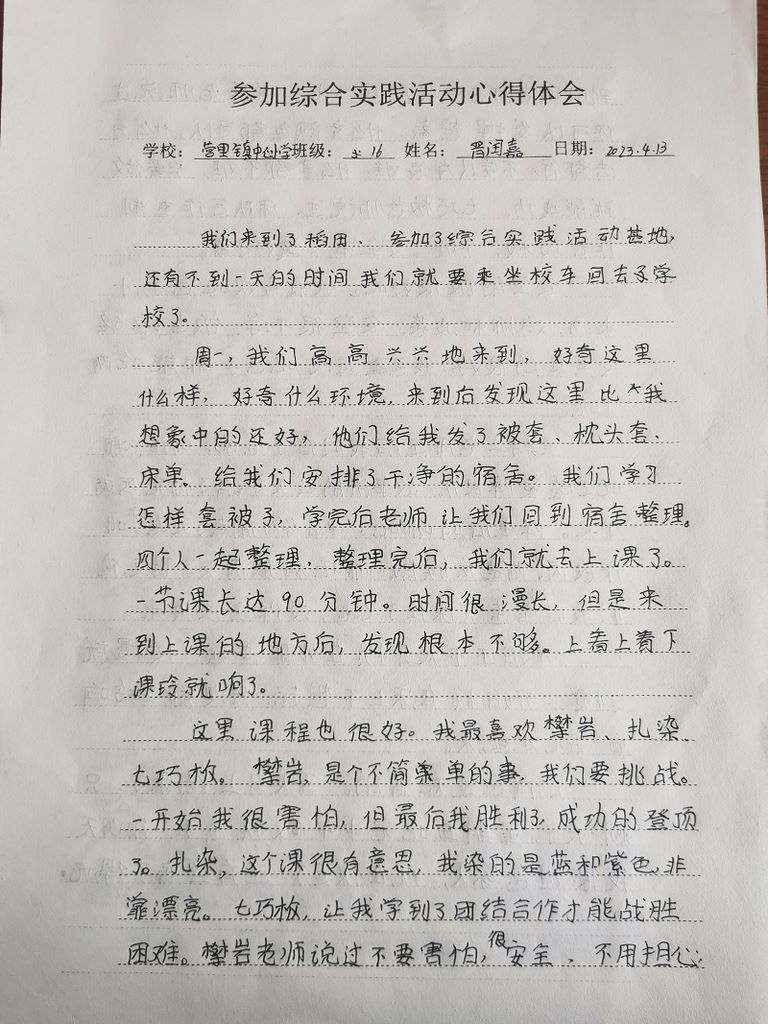 参加综合实践活动心得体会
学校：营里镇中心小学班级：七16 姓名：晋闰嘉 日期：2023.4.13
我们来到了稻田、参加了综合实践活动基地，
还有不到一天的时间我们就要乘坐校车回去了学
校了。
周一，我们高高兴兴地来到，好奇这里
什么样，好奇什么环境，来到后发现这里比我
想象中的还好，他们给我发了被套、枕头套、
床单。给我们安排了干净的宿舍。我们学习
怎样套被子，学完后老师让我们回到宿舍整理。
四个人一起整理，整理完后，我们就去上课了。
一节课长达90分钟。时间很漫长，但是来
到上课的地方后，发现根本不够。上着上着下
课玲就响了。
这里课程也很好。我最喜欢攀岩、扎染、
七巧板。攀岩，是个不简单的事，我们要挑战。
一开始我很害怕，但最后我胜利了，成功的登顶
了。扎染，这个课很有意思，我染的是蓝和紫色，非
常漂亮。七巧板，让我学到了团结合作才能战胜
困难。攀岩老师说过不要害怕，很安全、不用担心